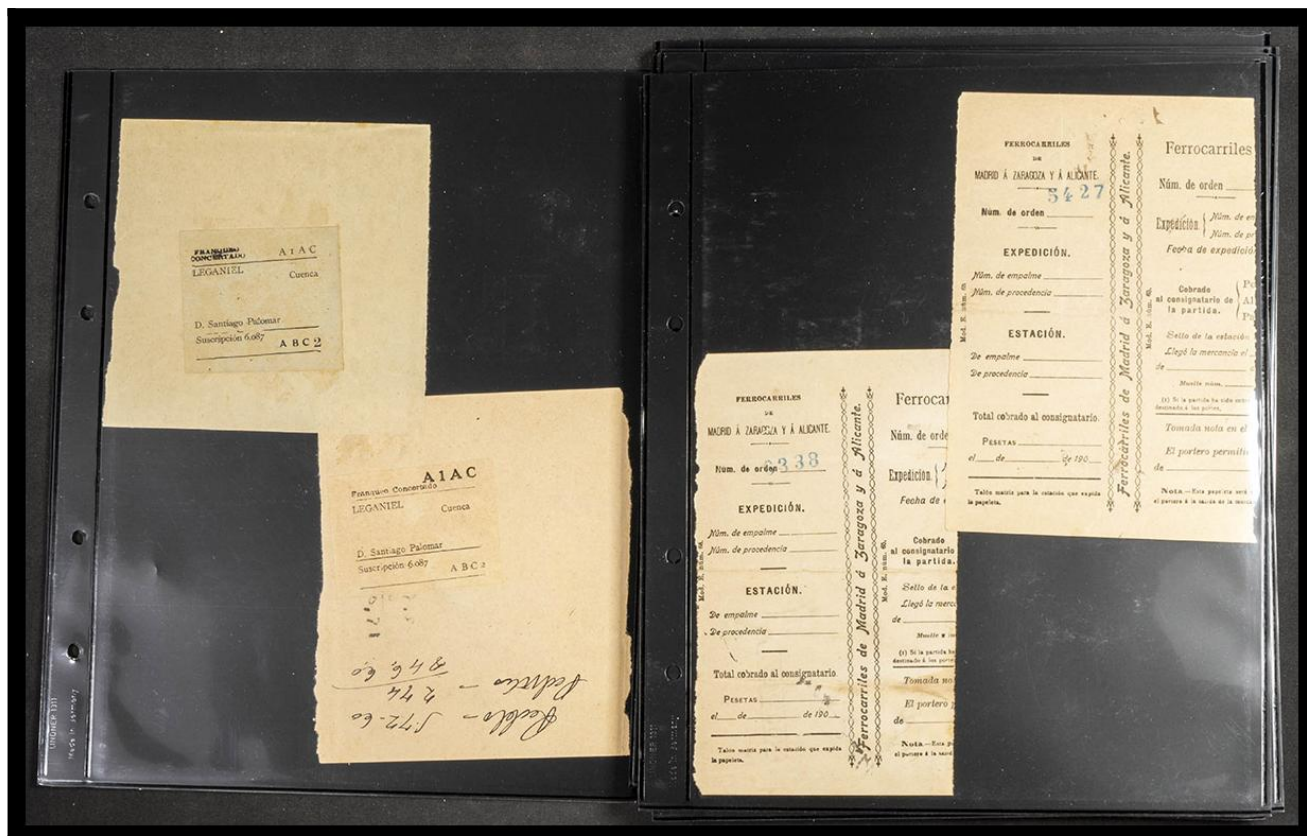 FRANQUEO
CONCERTADO
A1AC
LEGANIEL Cuenca
D. Santiago Palomar
Suscripción 6.087 ABC2
A1AC
Franqueo Concertado
LEGANIEL Cuenca
D. Santiago Palomar
Suscripción 6.087 ABC2
572-60
274
846,60
UNGNER 1311
Made in Germany
FERROCARRILES
DE
MADRID Á ZARAGOZA Y Á ALICANTE.
Núm. de orden 338
EXPEDICIÓN.
Núm. de empalme
Núm. de procedencia
ESTACIÓN.
De empalme
De procedencia
Total cobrado al consignatario.
PESETAS
el de de 190
Talón matriz para la estación que expida
la papeleta.
Mod. E. núm. 63.
Ferrocarriles de Madrid á Zaragoza y á Alicante.
Mod. E. núm. 63.
Ferrocar
Núm. de orde
Expedición.
Fecha de
Cobrado
al consignatario
la partida.
Sello de la e
Llegó la merca
de
Muelle
(1) Si la partida ha
destinado á los porte
Tomada no
El portero p
de
Nota.—Esta p
el portero á la sali
FERROCARRILES
DE
MADRID Á ZARAGOZA Y Á ALICANTE.
5427
Núm. de orden
EXPEDICIÓN.
Núm. de empalme
Núm. de procedencia
ESTACIÓN.
De empalme
De procedencia
Total cobrado al consignatario.
PESETAS
el de de 190
Talón matriz para la estación que expida
la papeleta.
Mod. E. núm. 63.
Ferrocarriles de Madrid á Zaragoza y á Alicante.
Mod. E. núm. 63.
Ferrocarriles
Núm. de orden
Expedición. Núm. de em
Núm. de pr
Fecha de expedició
Cobrado
al consignatario de
la partida.
Po
Al
Pa
Sello de la estación
Llegó la mercancía el
de
Muelle núm.
(1) Si la partida ha sido
destinado á los portes,
Tomada nota en el
El portero permiti
de
Nota.—Esta papeleta será
el portero á la salida de la